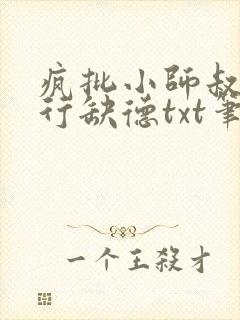 疯批小师叔
行缺德txt笔
一个王殺才